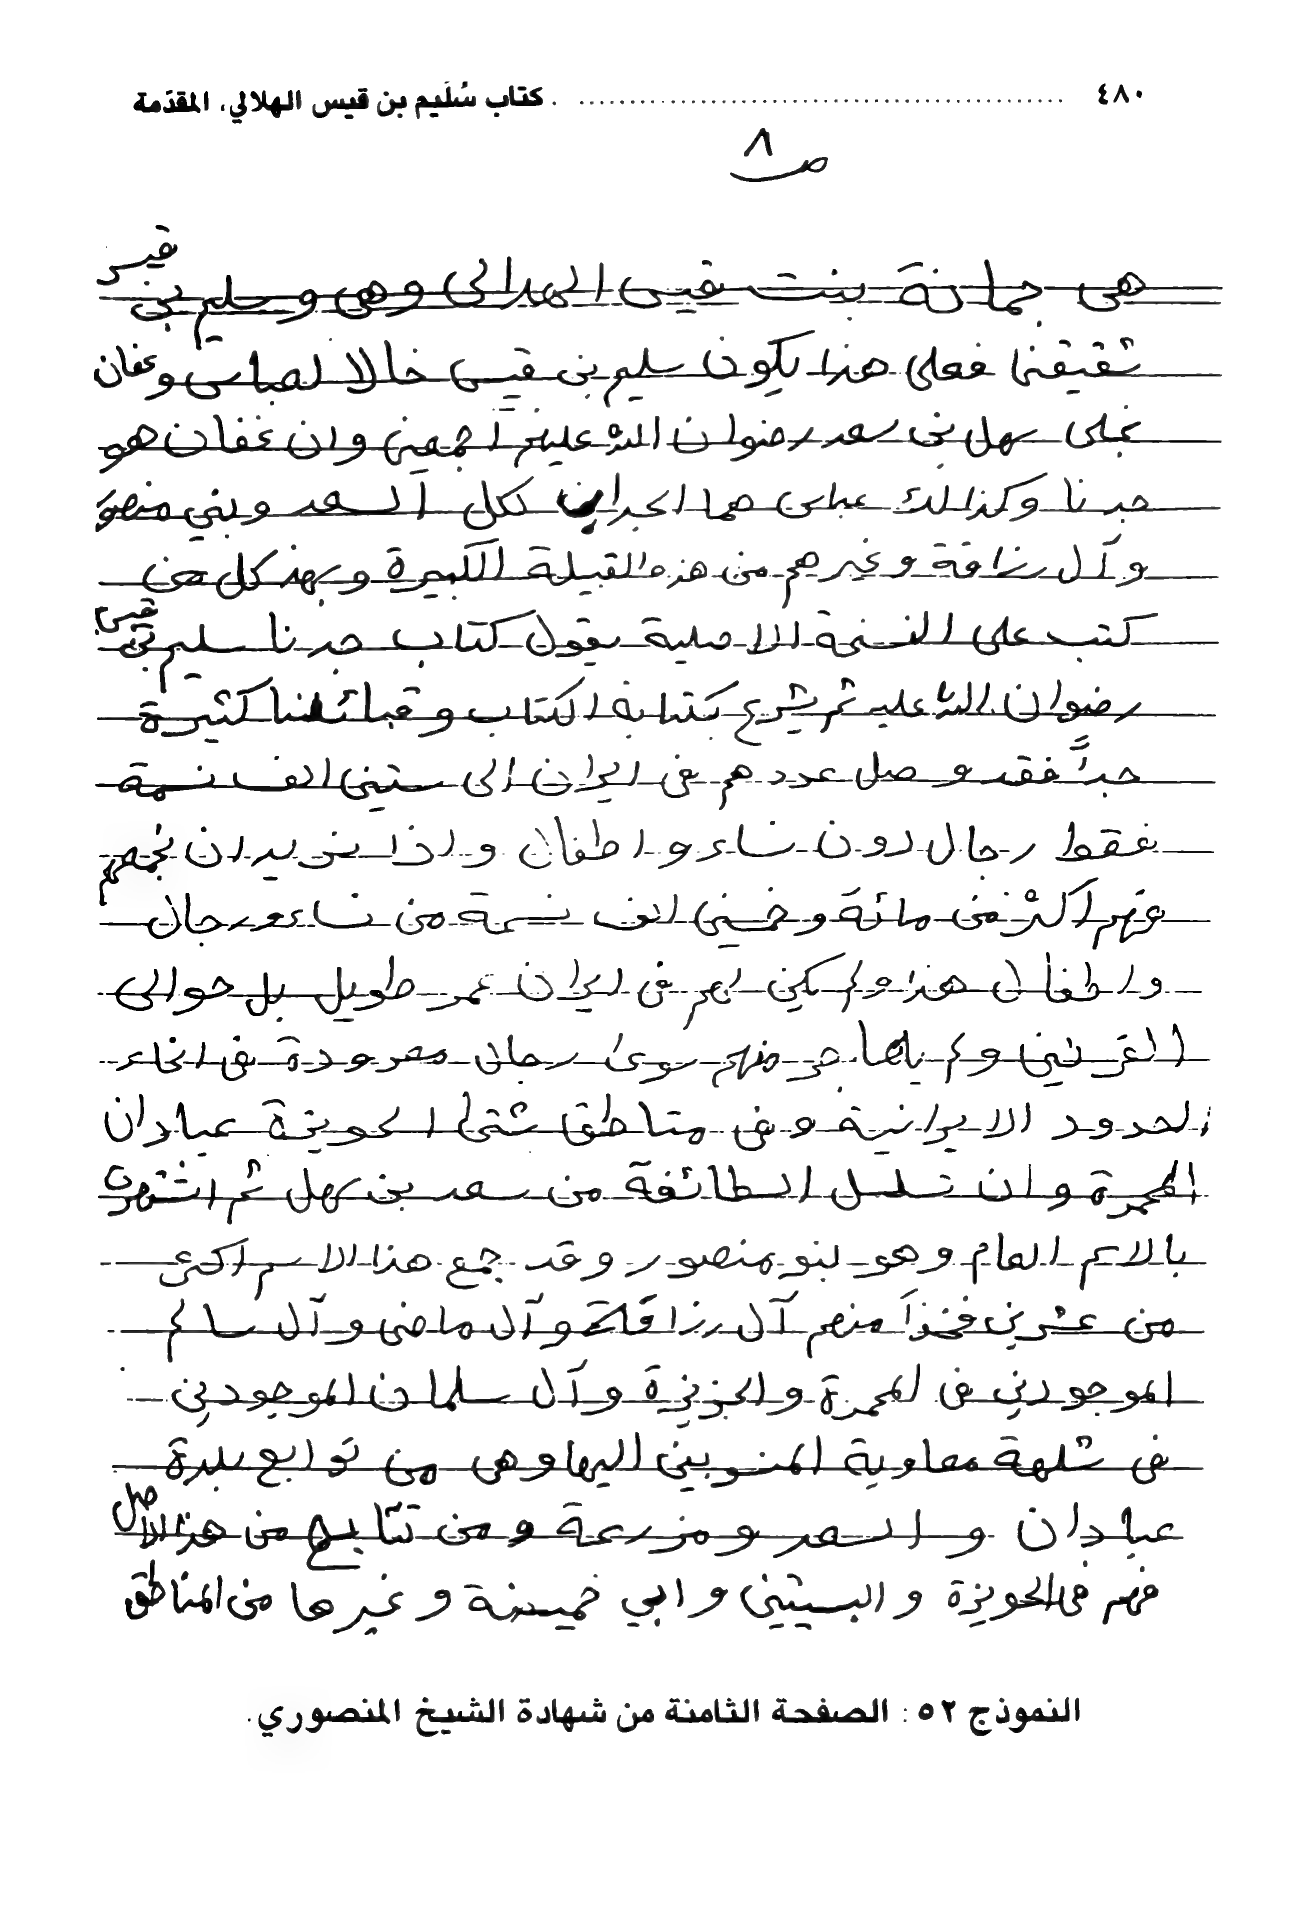 ٤٨٠ كتاب سُلَيم بن قيس الهلالي، المقدّمة
ص ٨
هي جمانة بنت قيس الهلالي وهي وسليم بن قيس
شقيقها فعلى هذا يكون سليم بن قيس خالا لعباس وعفان
نجلي سهل بن سعد رضوان الله عليهم أجمعين وان عفان هو
جدنا وكذالك عباس هما الجدان لكل السعد وبني منصور
وآل رزاقة وغيرهم من هذه القبيلة الكبيرة وبهذ كل من
كتب على النسخة الاصلية يقول كتاب جدنا سليم بن قيس
رضوان الله عليه ثم يشرع بكتابة الكتاب وقبائلنا كثيرة
جداً فقد وصل عددهم في ايران الى ستين الف نسمة
فقط رجال دون نساء واطفال واذا نريد ان نجمعهم
فهم أكثر من مائة وخمسين الف نسمة من نساء ورجال
واطفال هذا ولم يكن لهم في ايران عمر طويل بل حوالي
القرنين ولم منهم سوى رجال معدودة في انحاء
الحدود الايرانية وفي مناطق شتى الحويزة عبادان
المحمرة وان تسلسل الطائفة من سعد بن سهل ثم اشتهرت
بالاسم العام وهو لبنو منصور وقد جمع هذا الاسم اكثر
من عشرين فخذاً منهم آل رزاقة وآل ماضي وآل سالم
الموجودين في المحمرة والجزيرة وآل سلمان الموجودين
في شلهة معاوية المنسوبين اليها وهي من توابع بلدة
عبادان والسعد ومزرعة ومن تتابع من هذا الاصل
فهم في الحويزة والبسيتين وابي خميسة وغيرها من المناطق
النموذج ٥٢ : الصفحة الثامنة من شهادة الشيخ المنصوري.